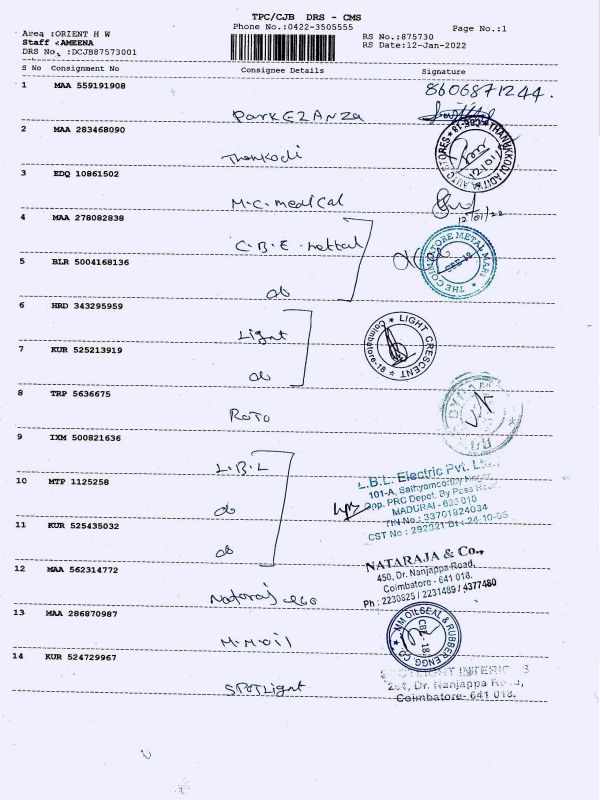 TPC/CJB DRS - CMS
Phone No.:0422-3505555
Page No.:1
Area :ORIENT H W
RS No.:875730
Staff :AMEENA
RS Date:12-Jan-2022
DRS No. :DCJB87573001
S No Consignment No Consignee Details Signature
1 MAA 559191908
8606871244.
Park EZANZA
2 MAA 283468090
THANIKKODI ADITYA AUTO STORES CBE-18
12/01/
Thankodi
3 EDQ 10861502
M.C. medical
12/01/22
4 MAA 278082838
C.B.E. mettal
THE COIMBATORE METAL MART
CBE-18
5 BLR 5004168136
do
6 HRD 343295959
Light
LIGHT CRESCENT
Coimbatore-18
7 KUR 525213919
do
8 TRP 5636675
ROTO
9 IXM 500821636
L.B.L
L.B.L. Electric Pvt.
10 MTP 1125258
101-A, Sathyamoorthy
Opp. PRC Depot, By Pass Road,
do
MADURAI - 625 010
TIN No.: 33701824034
11 KUR 525435032
CST No : 292021 Dt : 24-10-05
do
NATARAJA & Co.,
12 MAA 562314772
450, Dr. Nanjappa Road,
Coimbatore - 641 018.
Ph : 2230625 / 2231489 / 4377480
Nataraj
13 MAA 286870987
MM OILSEAL & RUBBER ENGG. CO.
CBE - 18.
M.M.oil
14 KUR 524729967
SPOTLIGHT INTERIORS
Dr. Nanjappa Road,
Coimbatore- 641 018.
SPOTLight